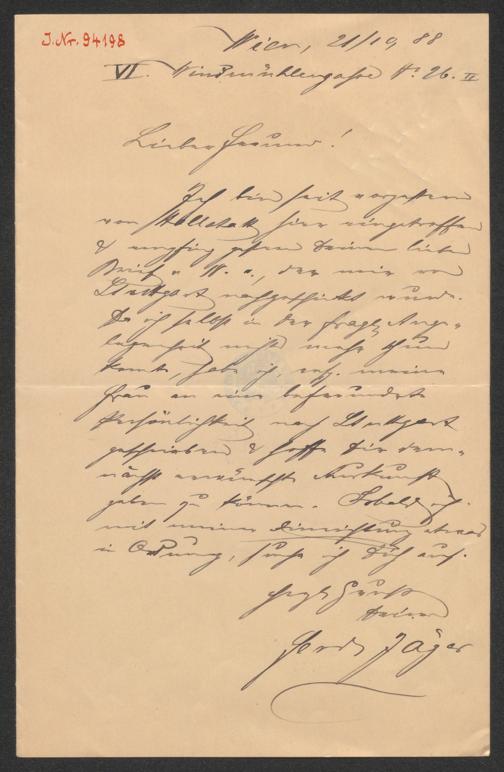 J.Nr. 94198
Wien, 21/10 88
VI. Windmühlengasse No. 26. II
Lieber Freund!
Ich bin seit vorgestern
von Hallstatt hier eingetroffen
& empfing gestern Deinen lieben
Brief, der mir von
Stuttgart nachgeschickt wurde.
Da ich selbst in der fragl. Ange-
legenheit nicht mehr thun
konnte, habe ich meine
Frau an eine befreundete
Persönlichkeit nach Stuttgart
geschrieben & hoffe Dir dem-
nächst erwünschte Auskunft
geben zu können. Sobald ich
mit meiner Einrichtung etwas
in Ordnung, suche ich Dich auf.
Herzl. Gruß
Deines
Ferd. Jäger